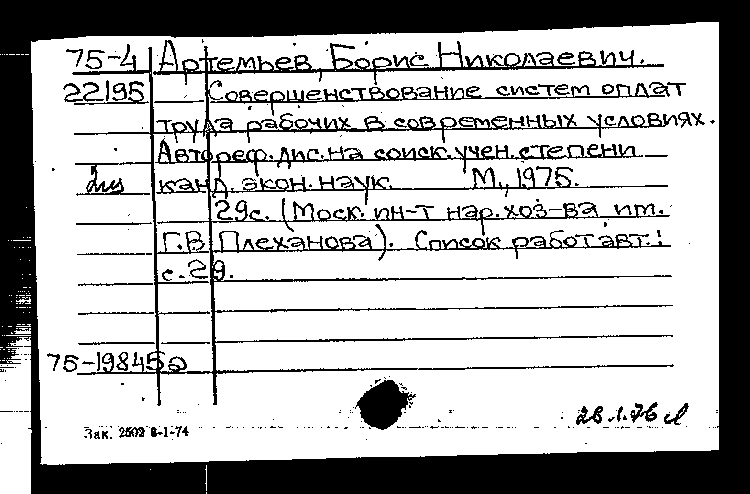 75-4 Артемьев, Борис Николаевич.
22195 Совершенствование систем оплат
труда рабочих в современных условиях.
Автореф. дис. на соиск. учен. степени
канд. экон. наук. М., 1975.
29с. (Моск. ин-т нар. хоз-ва им.
Г.В. Плеханова). Список работ авт.:
с. 29.
75-19845а
28.1.76
Зак. 2502 8-1-74